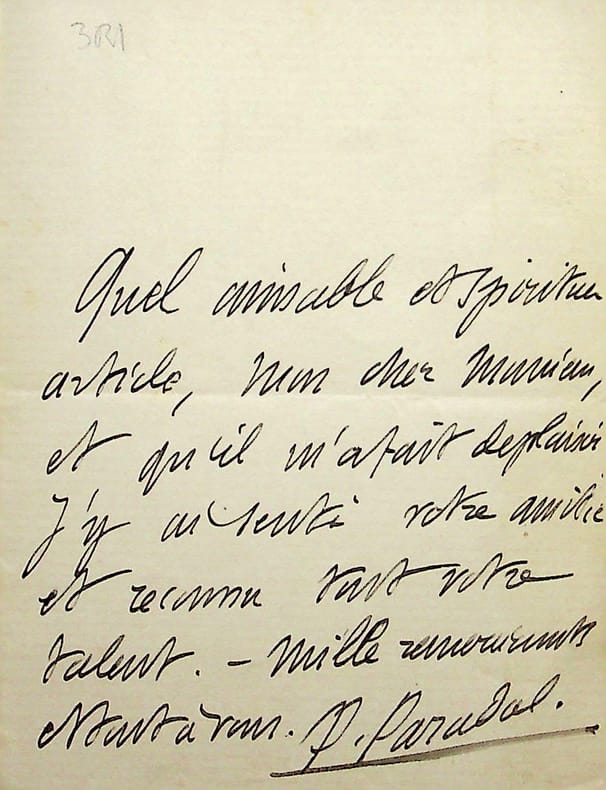 3R1
Quel aimable et spirituel
article, mon cher
et qu'il m'a fait de plaisir
J'y ai senti votre amitié
et reconnu tout votre
talent. – Mille remerciements
et tout à vous. P. Paradol.